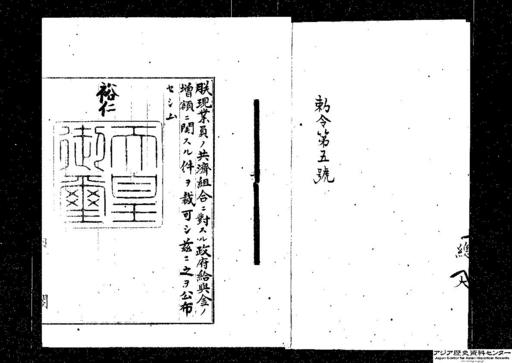 勅令第五號
朕現業員ノ共濟組合ニ對スル政府給與金ノ
増額ニ関スル件ヲ裁可シ茲ニ之ヲ公布
セシム
裕仁
天皇
御璽
アジア歴史資料センター
Japan Center for Asian Historical Records